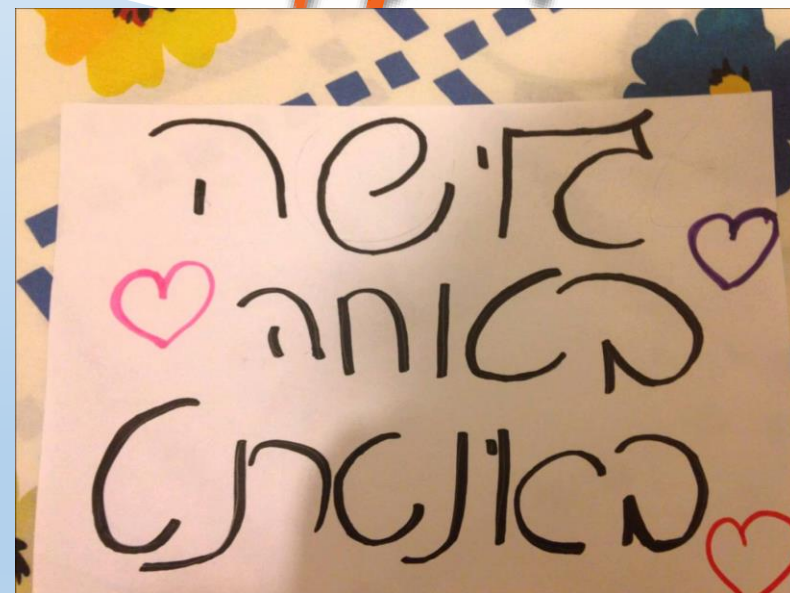 גלישה
בטוחה
באינטרנט